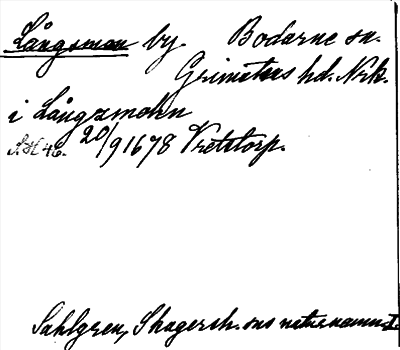 Långsmon by Bodarne sn.
Grimstens hd. Nrk.
i Långzmohn
S.H. 46. 20/9 1678 Vretstorp.
Sahlgren, Skagersh. sns naturnamn I.